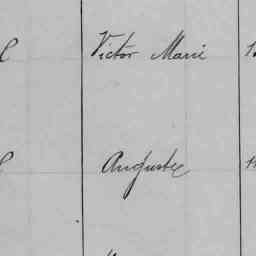 Victor Marie
Auguste